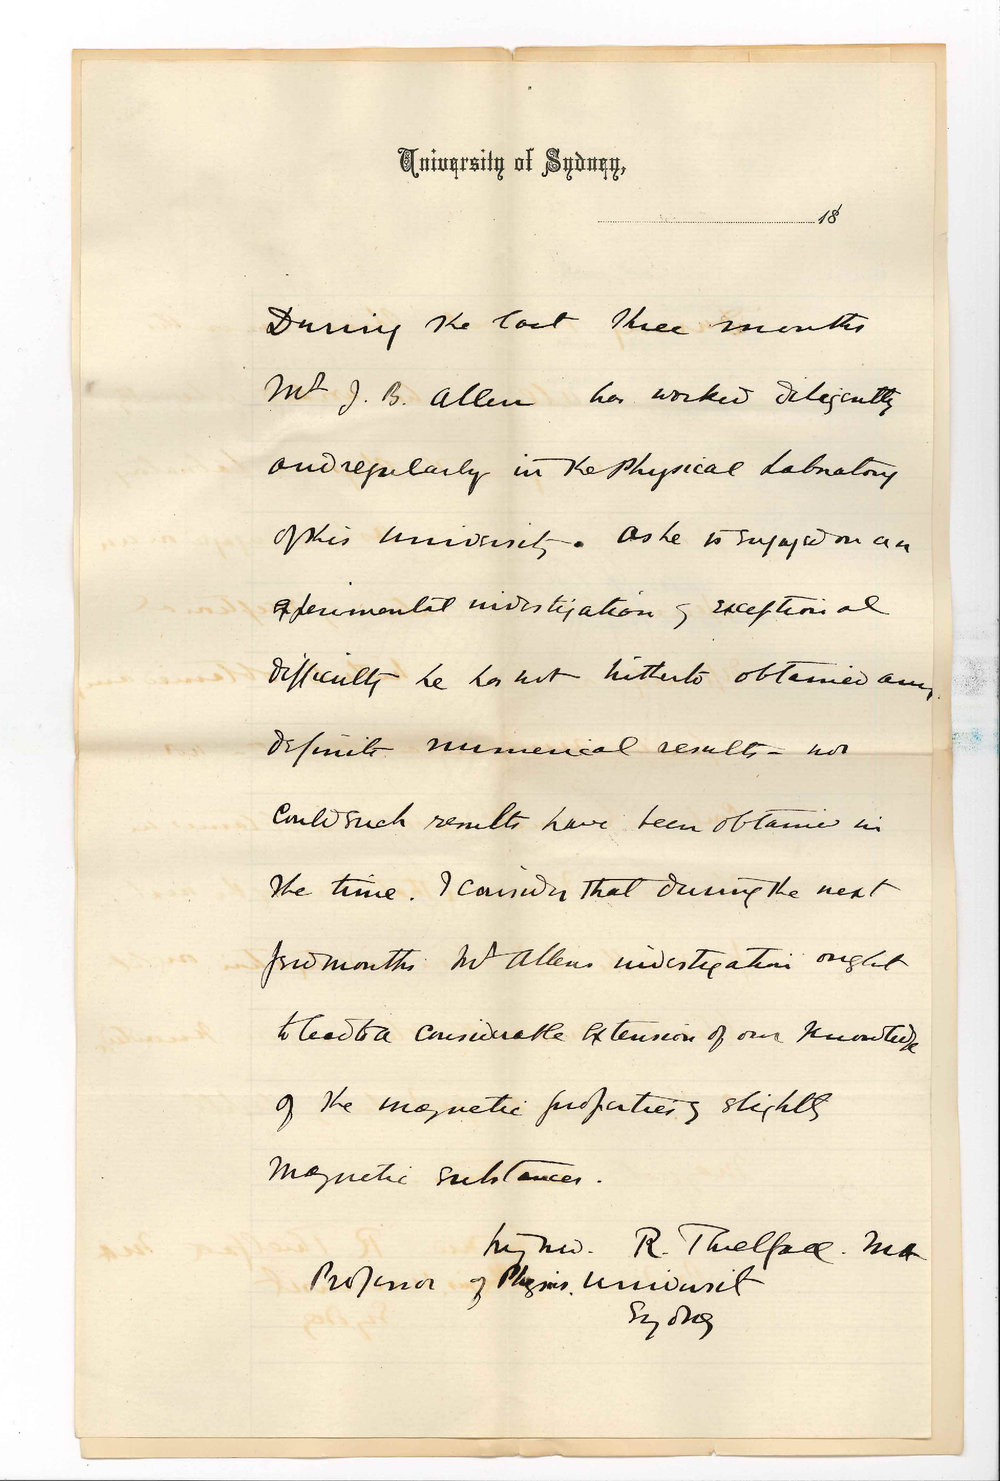 University of Sydney,
18
During the last three months
Mr J. B. Allen has worked diligently
and regularly in the Physical Laboratory
of this University. As he is engaged on an
experimental investigation of exceptional
difficulty he has not hitherto obtained any
definite numerical results – nor
could such results have been obtained in
the time. I consider that during the next
few months Mr Allens investigation ought
to lead to a considerable extension of our knowledge
of the magnetic properties of slightly
magnetic substances.
Signed. R. Threlfall. MA
Professor of Physics. University
Sydney